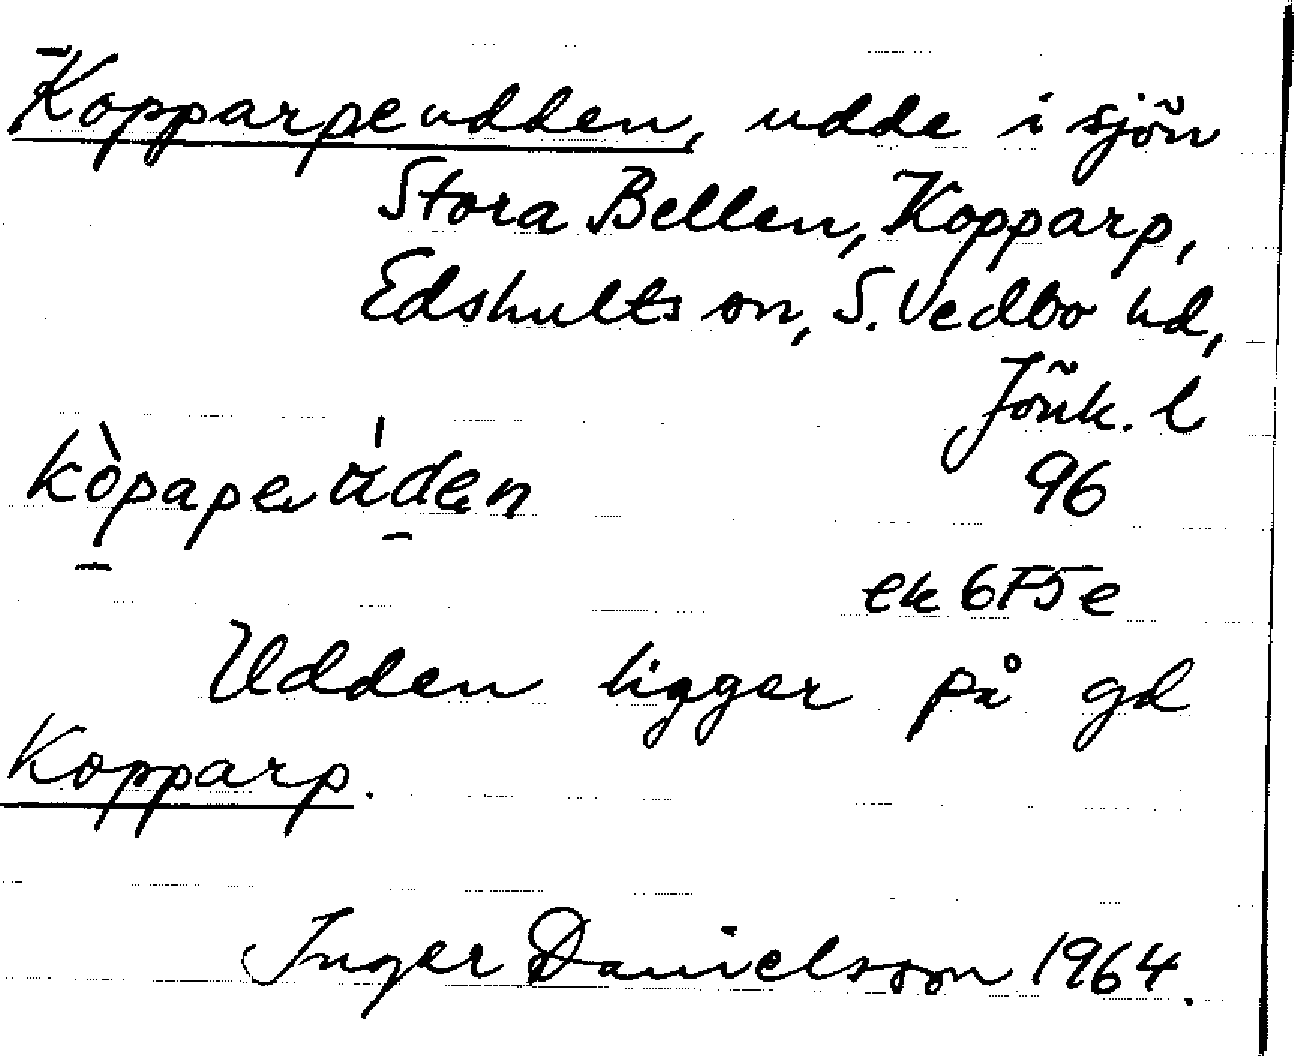 Kopparpeudden, udde i sjön
Stora Bellen, Kopparp,
Edshults sn, S. Vedbo hd,
Jönk. l
kòpape úden
96
ek 6F5e
Udden ligger på gd
Kopparp.
Inger Danielsson 1964.